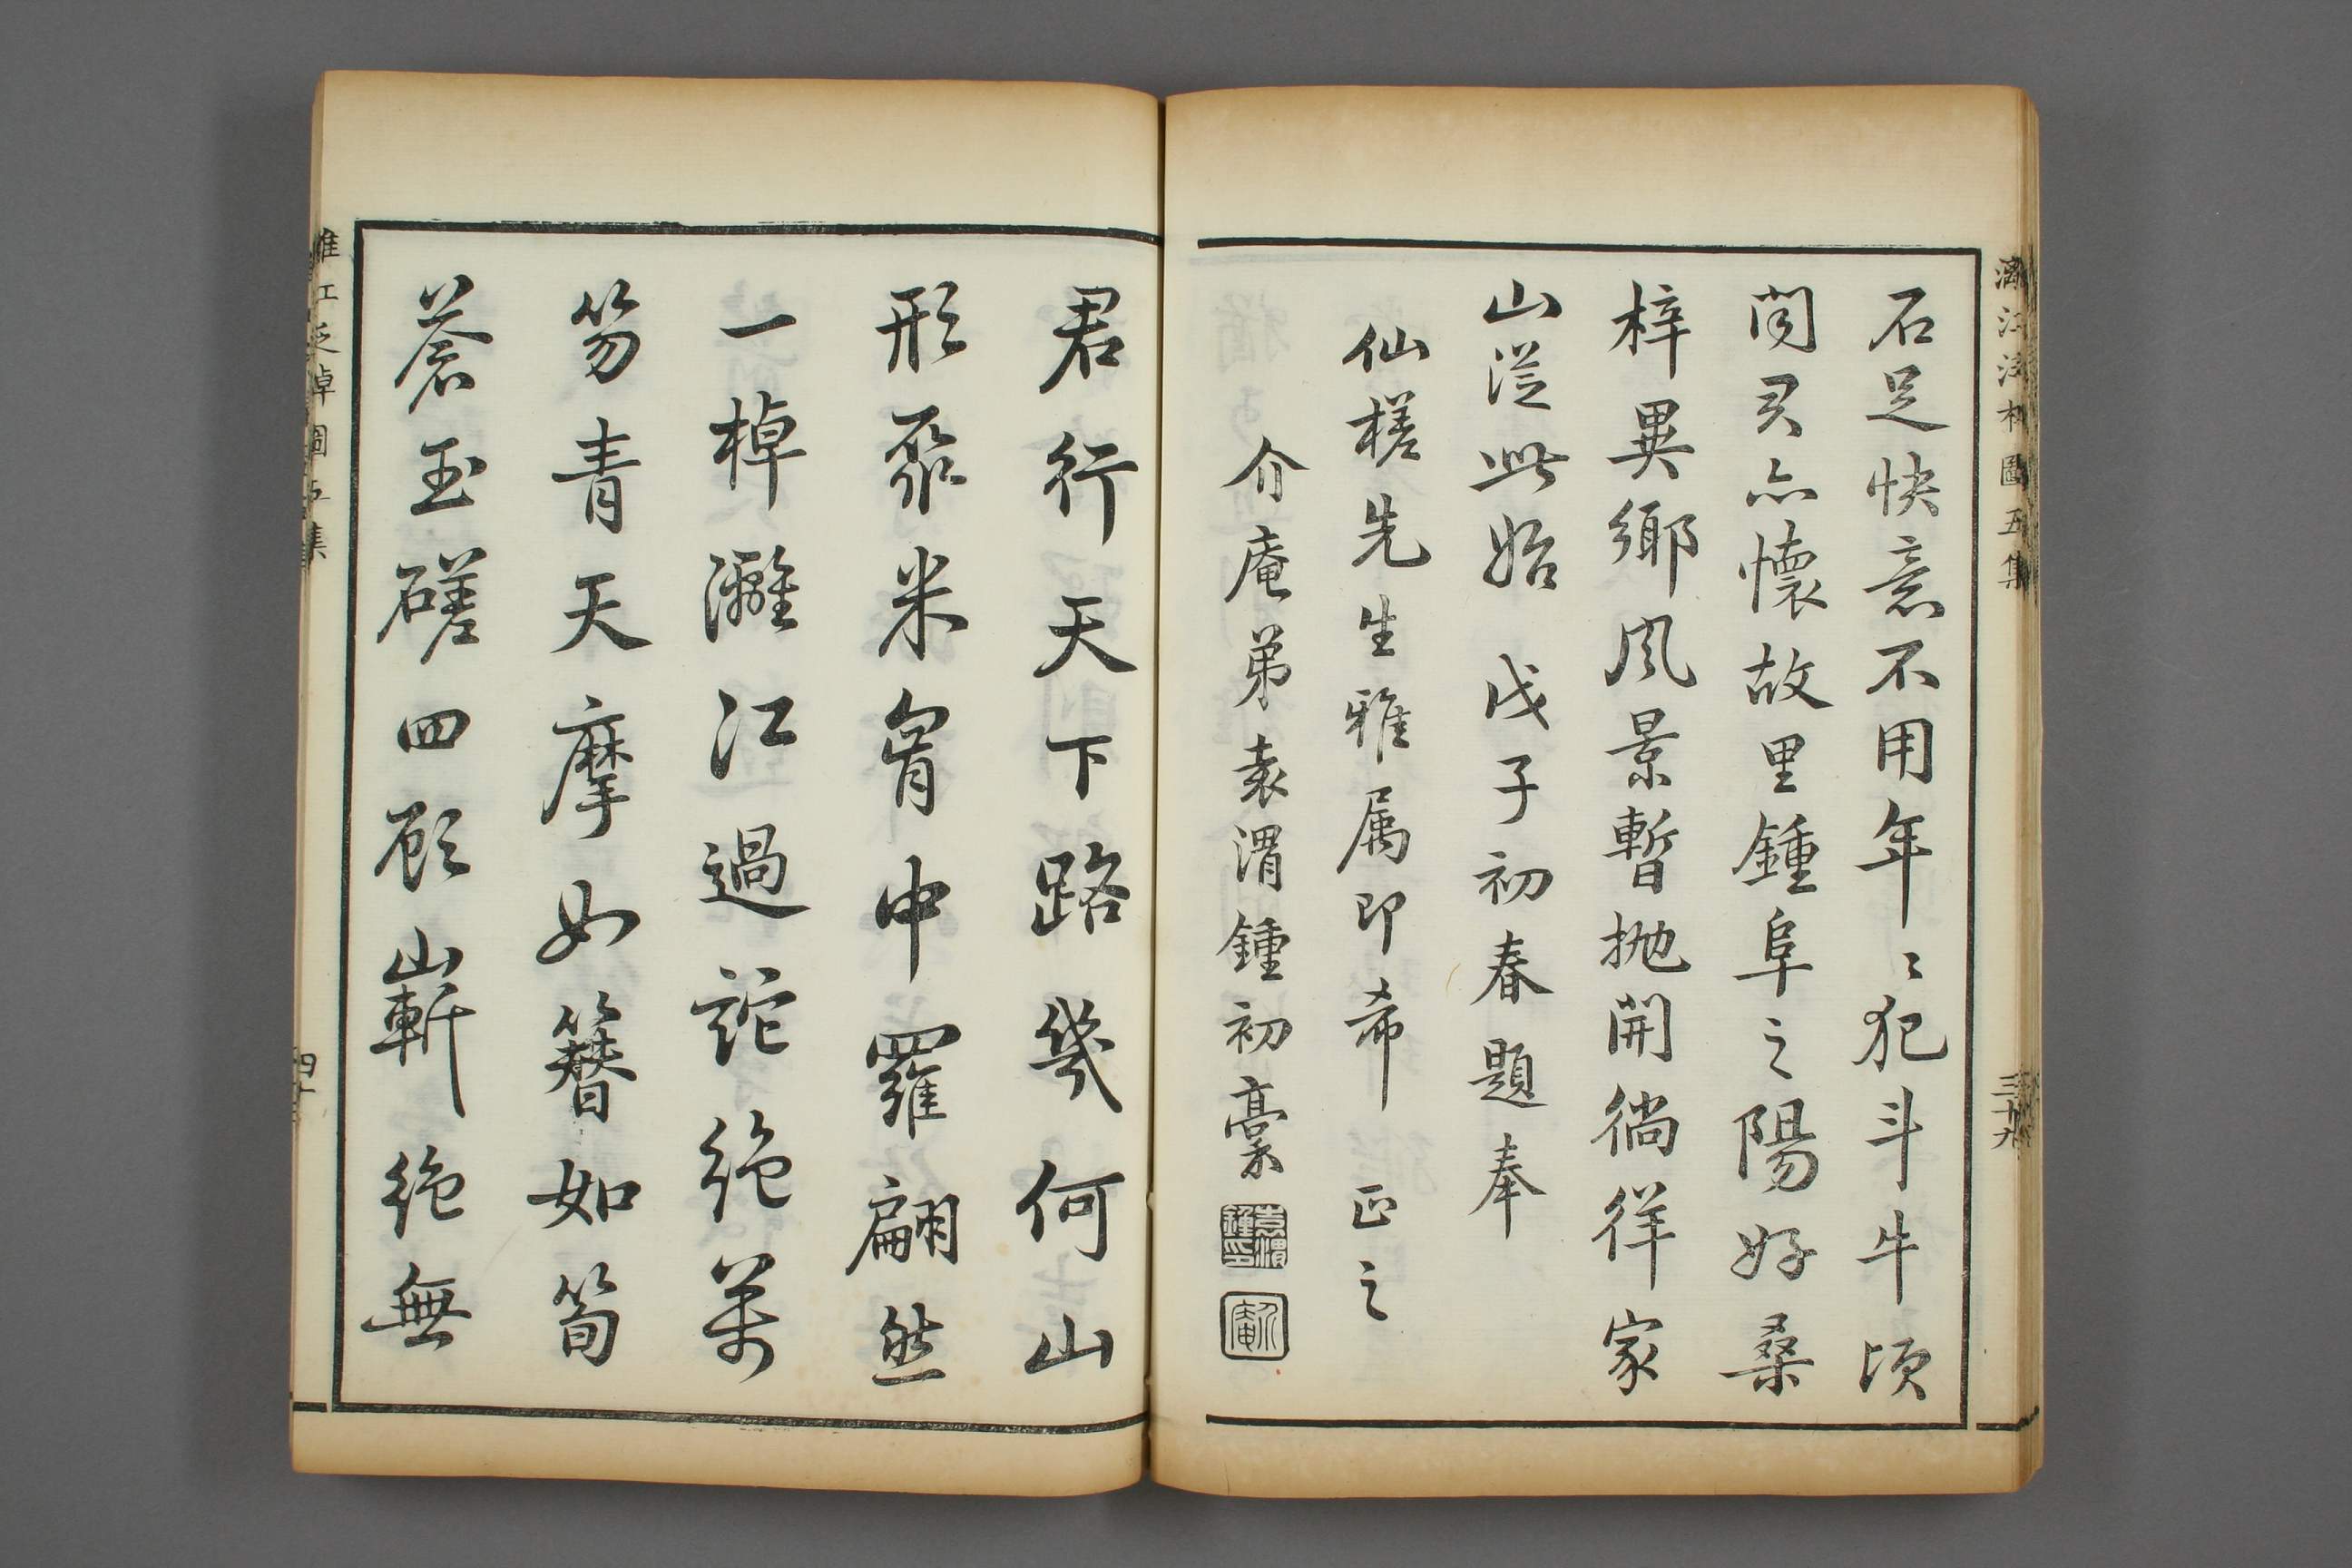 石足快意不用年〻犯斗牛頃
聞君亦懷故里鍾阜之陽好桑
梓異鄉風景暫拋開徜徉家
山從此始 戊子初春題奉
仙槎先生雅屬即希 正之
介庵弟袁渭鍾初稾
袁渭鍾印
君行天下路幾何山
形聚米胷中羅翩然
一棹灕江過詫絶萬
笏青天摩如簪如筍
蒼玉磋四顧嶄絶無
灕江泛棹圖五集
三十九
四十